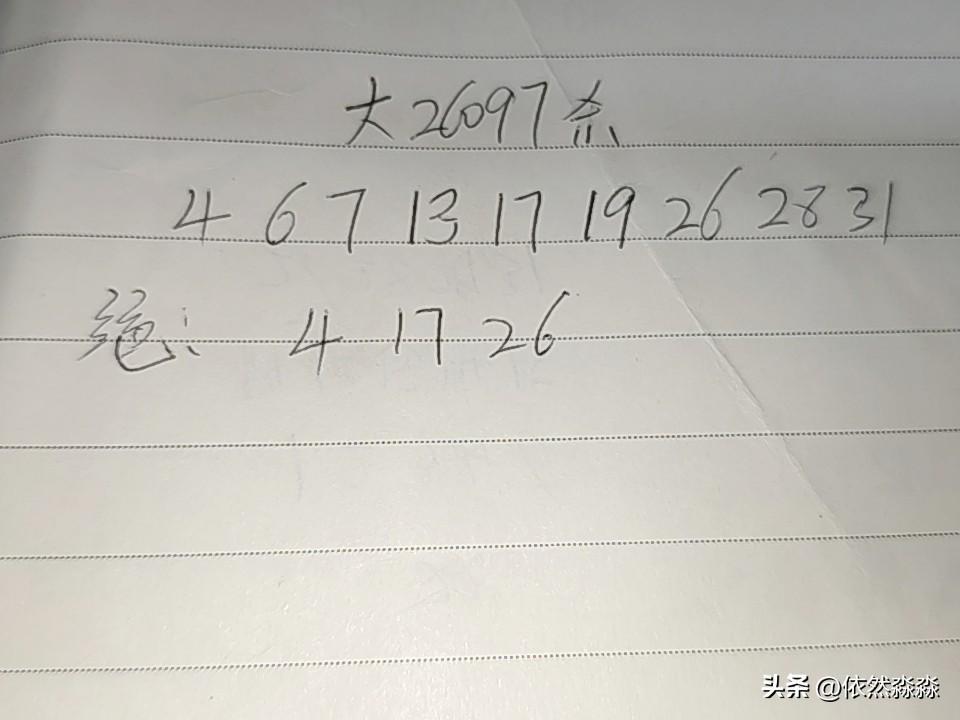 大26097杀
4 6 7 13 17 19 26 28 31
绝: 4 17 26
头条 @依然淼淼